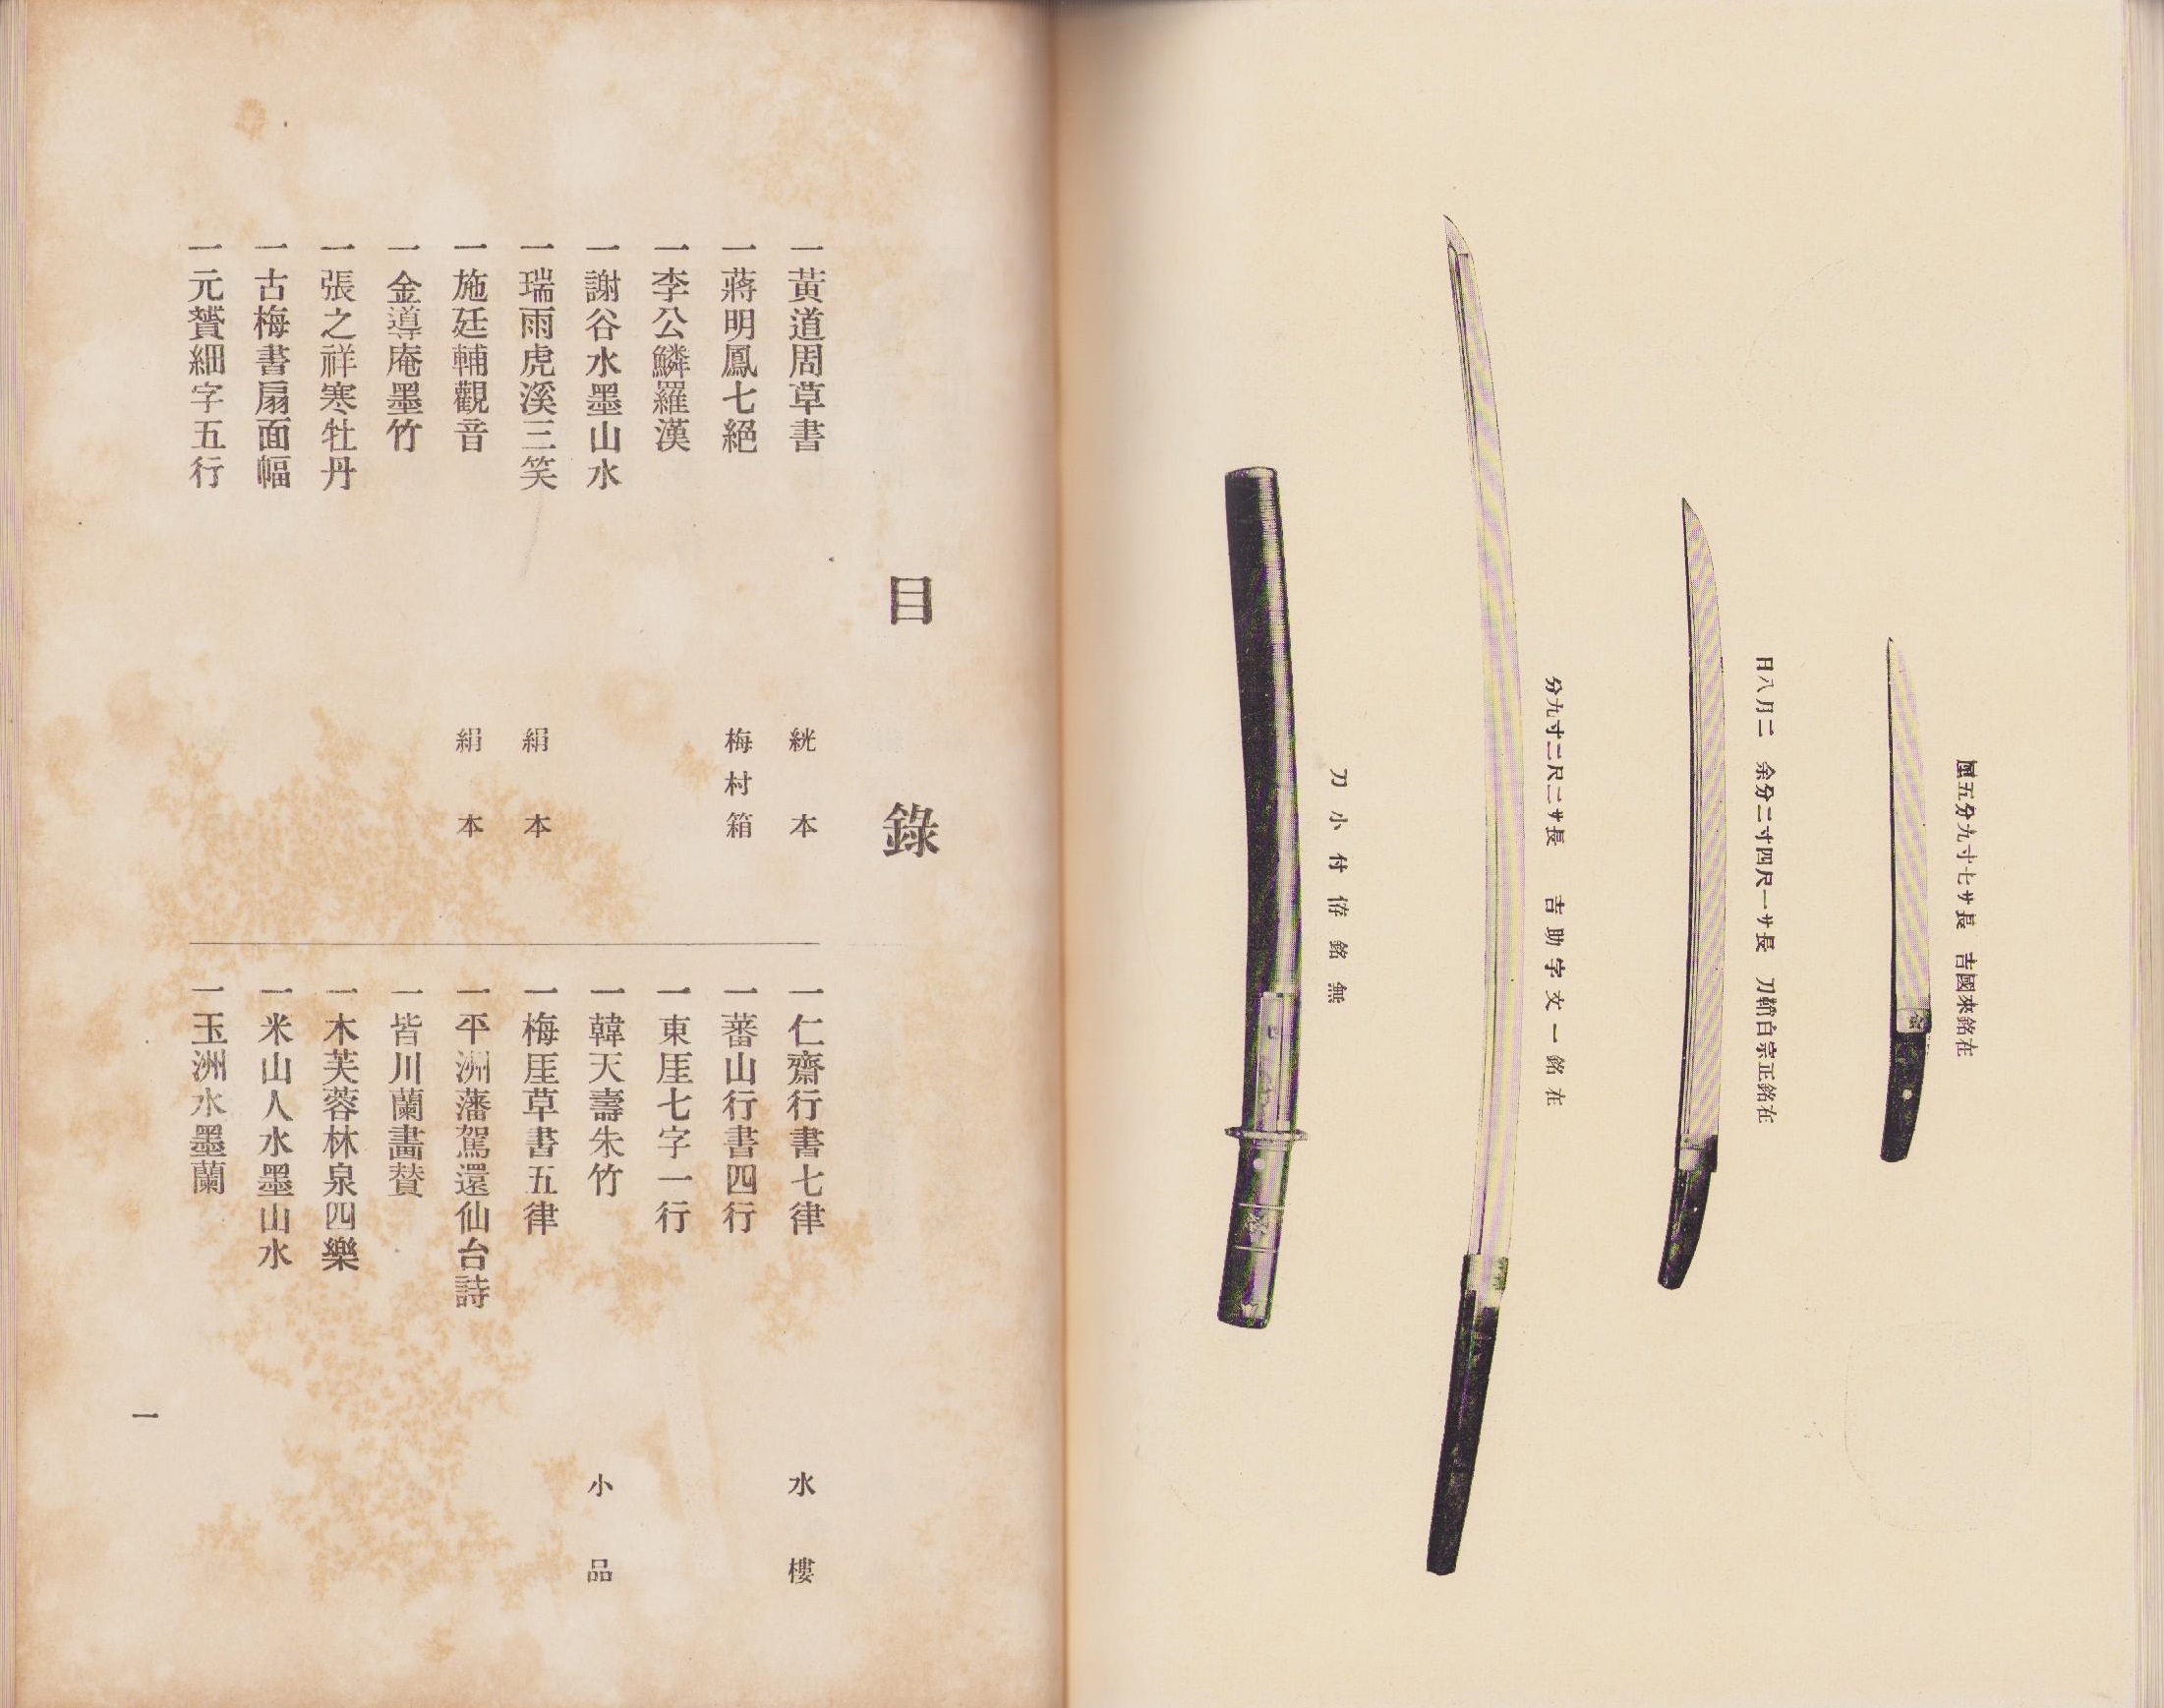 在銘來國吉　長サ七寸九分五厘
在銘正宗白鞘刀　長サ一尺四寸二分余　二月八日
在銘一文字助吉　長サ二尺二寸九分
無銘侟付小刀
目錄
一黃道周草書　絖本
一蔣明鳳七絕　梅村箱
一李公鱗羅漢
一謝谷水墨山水
一瑞雨虎溪三笑　絹本
一施廷輔觀音　絹本
一金導庵墨竹
一張之祥寒牡丹
一古梅書扇面幅
一元贇細字五行
一仁齋行書七律　水樓
一蕃山行書四行
一東厓七字一行
一韓天壽朱竹　小品
一梅厓草書五律
一平洲藩駕還仙台詩
一皆川蘭畫賛
一木芙蓉林泉四樂
一米山人水墨山水
一玉洲水墨蘭
一